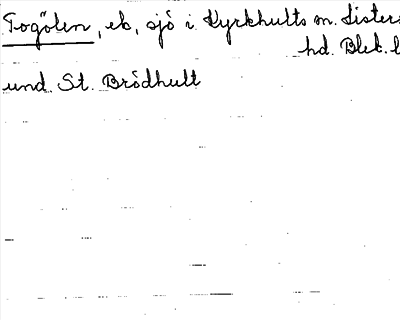 Togölen, eb, sjö i Kyrkhults sn. Listers
hd. Blek. l
und. St. Brödhult